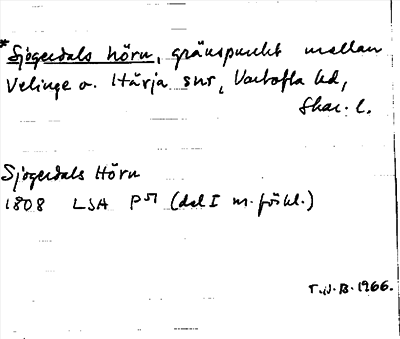 *Sjögerdals hörn, gränspunkt mellan
Velinge o. Härja snr, Vartofta hd,
Skar. l.
Sjögerdals Hörn
1808 LSA P 51 (del I m. förkl.)
T.J.B. 1966.